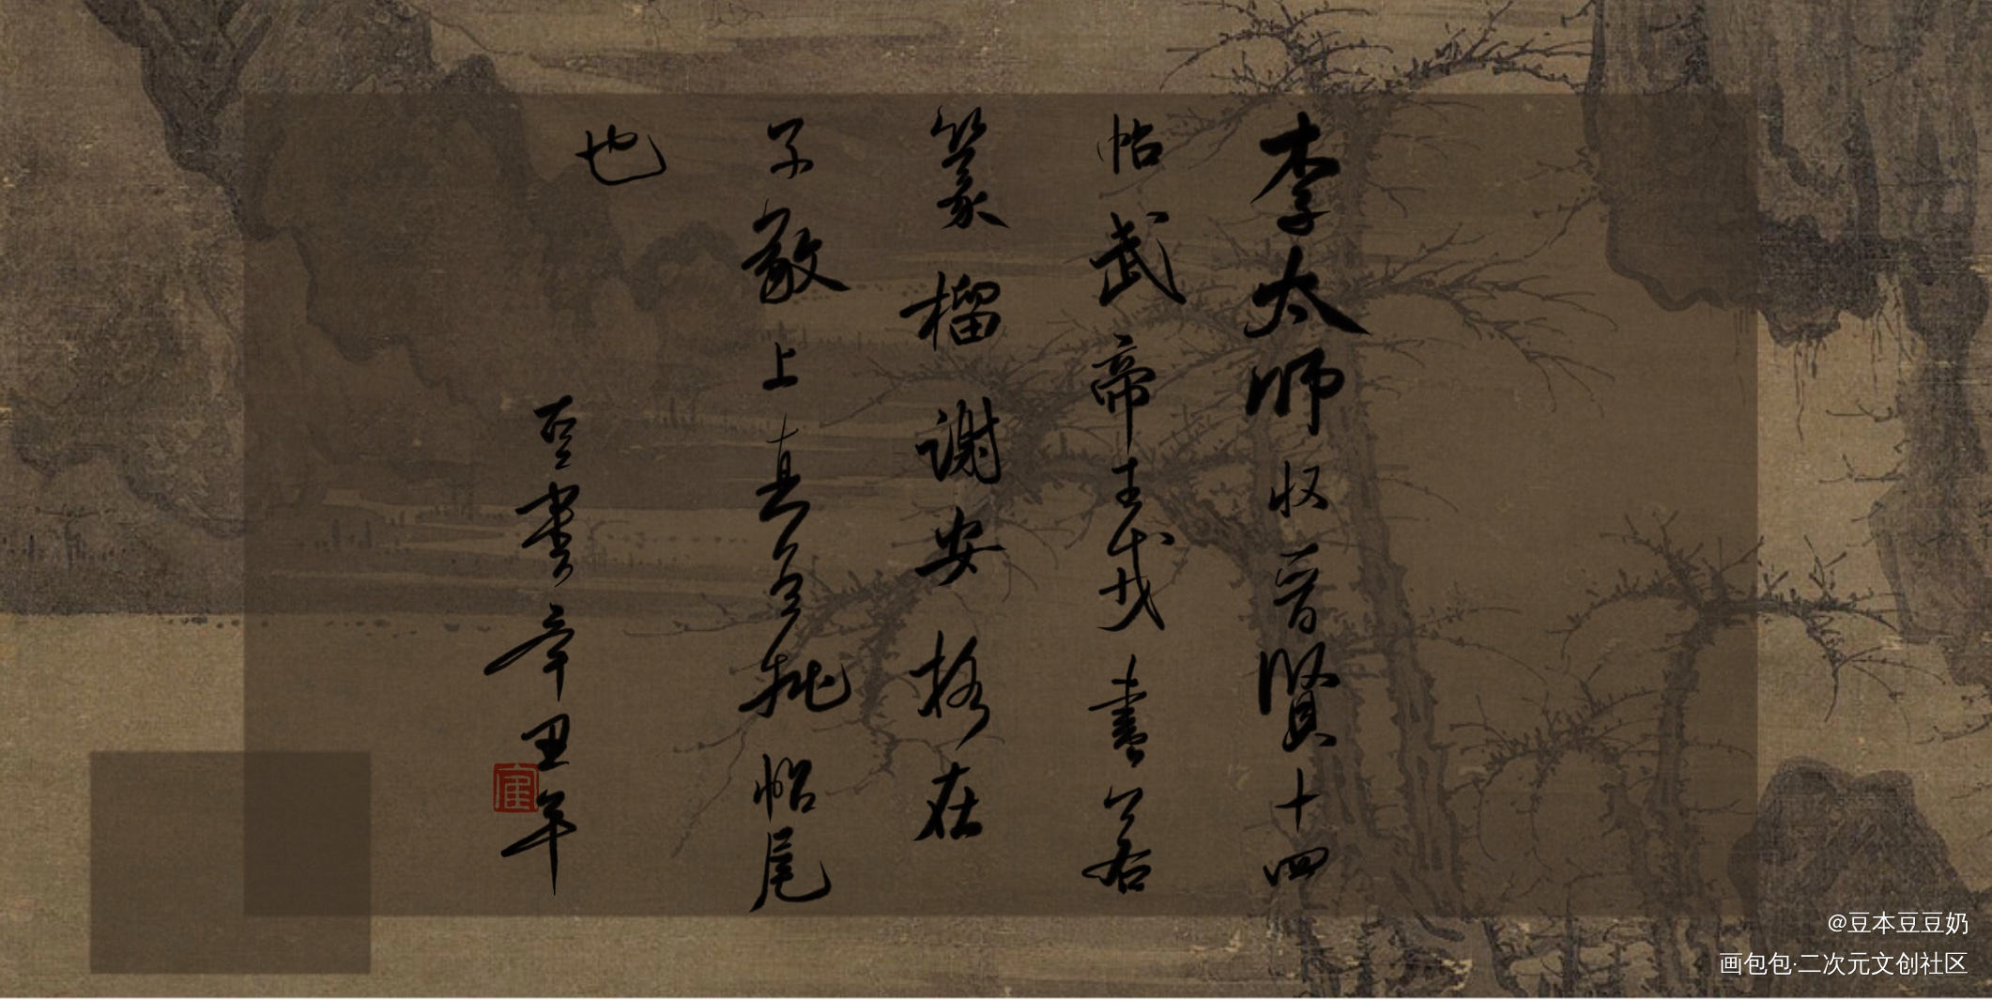 李太师收晋贤十四
帖武帝王戎书若
篆榴谢安格在
子敬上真宜批帖尾
也
豆书辛丑年
@豆本豆豆奶
画包包·二次元文创社区